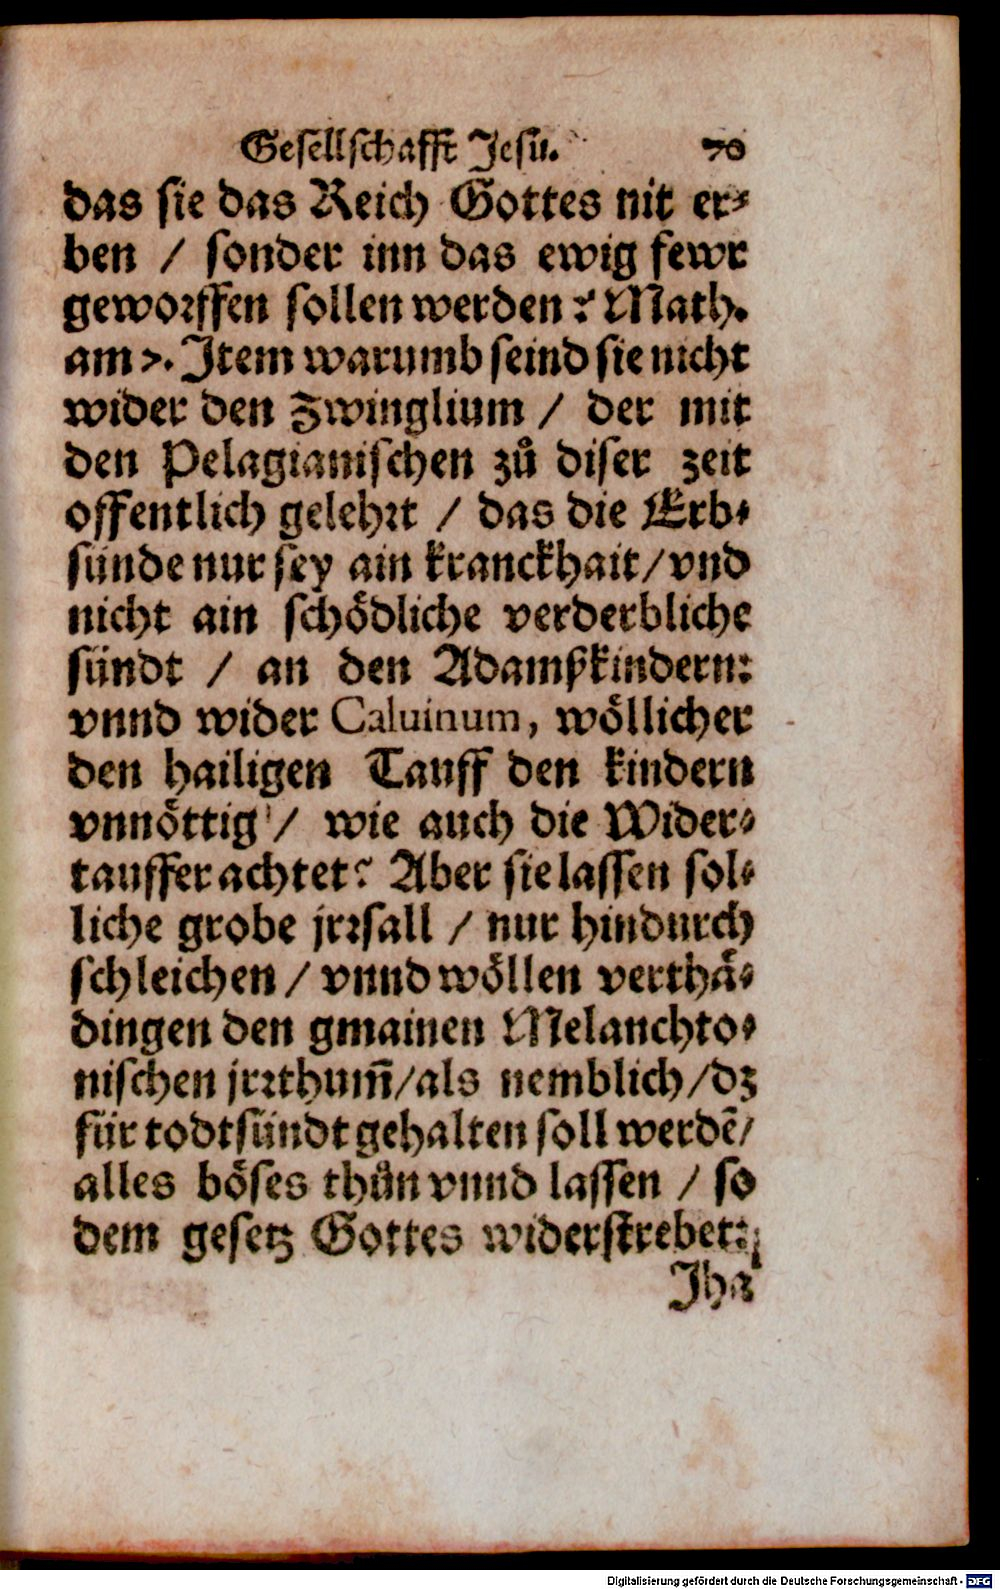 Gesellschafft Jesu. 70
das sie das Reich Gottes nit er⸗
ben / sonder inn das ewig fewr
geworffen sollen werden? Math.
am 7. Item warumb seind sie nicht
wider den Zwinglium / der mit
den Pelagianischen zů diser zeit
offentlich gelehrt / das die Erb⸗
sünde nur sey ain kranckhait / vnd
nicht ain schödliche verderbliche
sündt / an den Adamßkindern:
vnnd wider Caluinum, wöllicher
den hailigen Tauff den kindern
vnnöttig / wie auch die Wider⸗
tauffer achtet? Aber sie lassen sol⸗
liche grobe jrrsall / nur hindurch
schleichen / vnnd wöllen verthä⸗
dingen den gmainen Melanchto⸗
nischen jrrthum̃ / als nemblich / dz
für todtsündt gehalten soll werdẽ /
alles böses thůn vnnd lassen / so
dem gesetz Gottes widerstrebet:
Digitalisierung gefördert durch die Deutsche Forschungsgemeinschaft - DFG